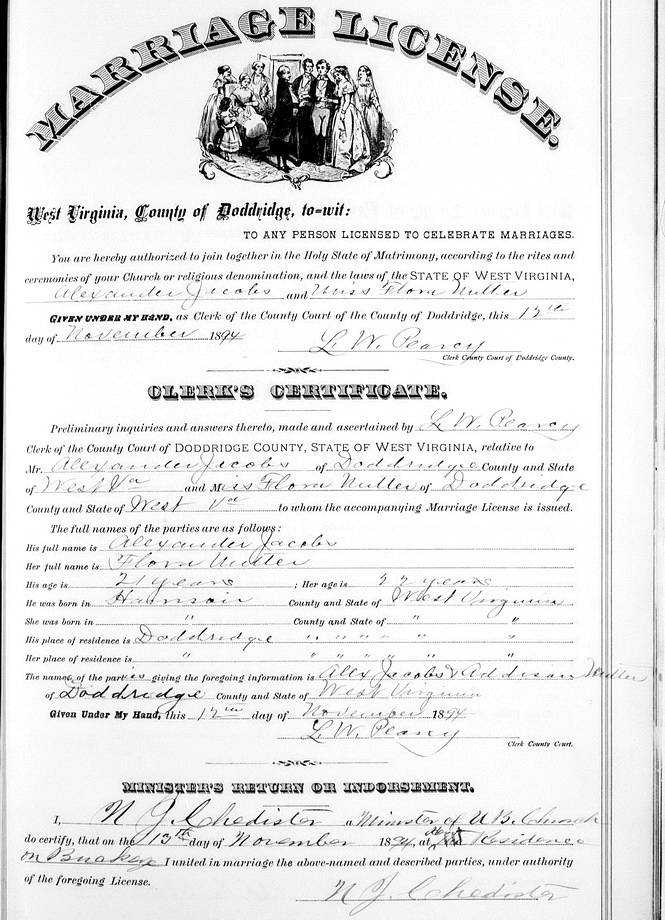 MARRIAGE LICENSE.
West Virginia, County of Doddridge, to=wit:
TO ANY PERSON LICENSED TO CELEBRATE MARRIAGES.
You are hereby authorized to join together in the Holy State of Matrimony, according to the rites and
ceremonies of your Church or religious denomination, and the laws of the STATE OF WEST VIRGINIA,
Alexander Jacobs and Miss Flora Nutter
GIVEN UNDER MY HAND, as Clerk of the County Court of the County of Doddridge, this 12th
day of November 1894
L. W. Pearcy
Clerk County Court of Doddridge County.
CLERK'S CERTIFICATE.
Preliminary inquiries and answers thereto, made and ascertained by L. W. Pearcy
Clerk of the County Court of DODDRIDGE COUNTY, STATE OF WEST VIRGINIA, relative to
Mr. Alexander Jacobs of Doddridge County and State
of West Va and Miss Flora Nutter of Doddridge
County and State of West Va to whom the accompanying Marriage License is issued.
The full names of the parties are as follows:
His full name is Alexander Jacobs
Her full name is Flora Nutter
His age is 21 years ; Her age is 22 years
He was born in Harrison County and State of West Virginia
She was born in " County and State of " "
His place of residence is Doddridge " " " " " "
Her place of residence is " " " " " " " "
The names of the parties giving the foregoing information is Alex Jacobs & Addison Nutter
of Doddridge County and State of West Virginia
Given Under My Hand, this 12th day of November 1894
L. W. Pearcy
Clerk County Court.
MINISTER'S RETURN OR INDORSEMENT.
I, N J Chedister a Minister of U B. Church
do certify, that on the 13th day of November 1894, at Residence
on Buckeye I united in marriage the above-named and described parties, under authority
of the foregoing License.
N J Chedister